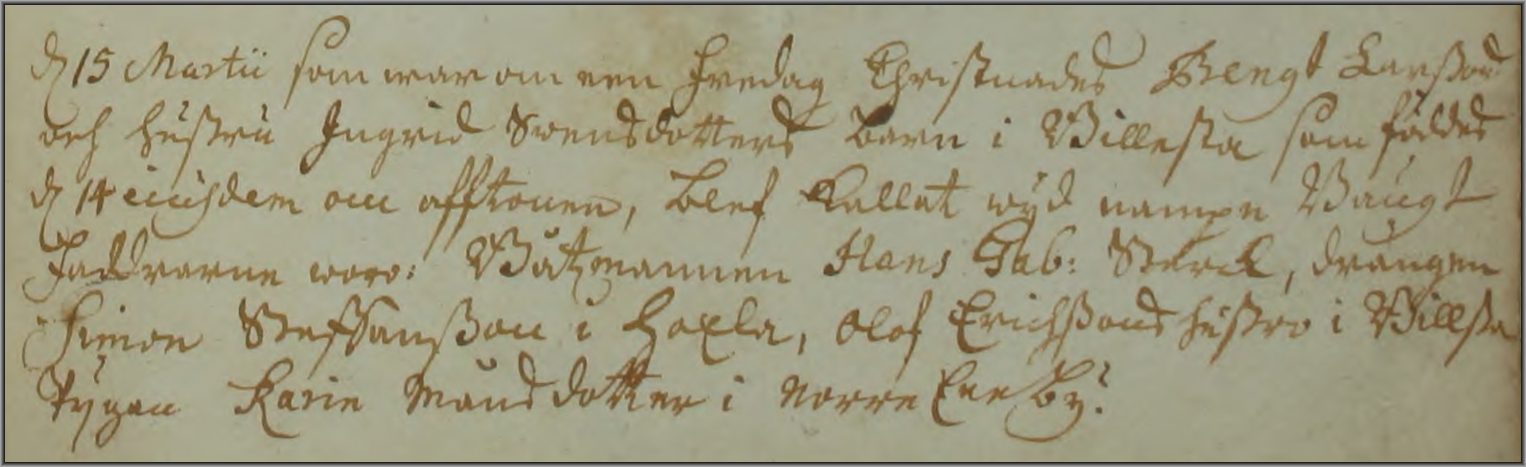 d 15 Martii som war om een Fredag Christnades Bengt Larßons
och hustru Ingrid Svensdotters barn i Billesta som föddes
d 14 eiusdem om afftonen, blef kallat wijd nampn Bengt
Faddrarne woro: Båtzmannen Hans Gab: Sterck, drängen
Simon Steffanßon i Hoxla, Olof Erichßons hustro i Billsta
Pygan Karin Månsdotter i Norre Eneby.